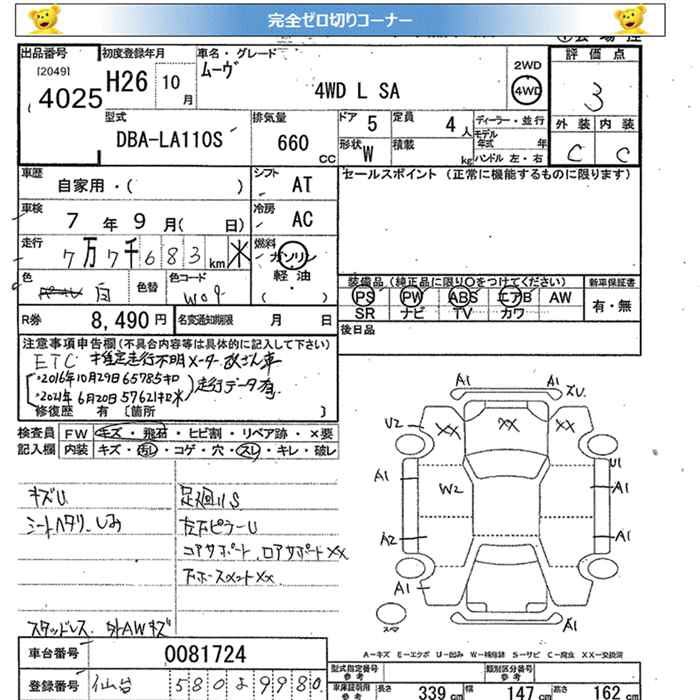 完全ゼロ切りコーナー
出品番号 初度登録年月 車名・グレード 評価点
[2049] 4025 H26 10月 ムーヴ 4WD L SA 2WD 4WD 3
型式 排気量 ドア 5 定員 4人 ディーラー・並行 外装 内装
DBA-LA110S 660cc 形状 W 積載 kg モデル年式 年 ハンドル 左・右 C C
車歴 自家用・( ) シフト AT セールスポイント (正常に機能するものに限ります)
車検 7年9月( 日) 冷房 AC
走行 7万7千683km 燃料 ガソリン 軽油 ( )
色 白 色替 色コード W09 装備品 (純正品に限り○をつけてください) 新車保証書
PS PW ABS エアB AW 有・無
SR ナビ TV カワ
R券 8,490円 名変通知期限 月 日 後日品
注意事項申告欄(不具合内容等は具体的に記入して下さい)
ETC 推定走行不明 メーター改ざん車
*2016年10月29日65785キロ
*2021年6月20日57621キロ 走行データ有
修復歴 有 [箇所 ]
検査員 FW キズ・飛石・ヒビ割・リペア跡・×要
記入欄 内装 キズ・汚レ・コゲ・穴・スレ・キレ・破レ
キズU 足廻りS
シートヘタリ、しみ 左下ピラーU
コアサポート、ロアサポートXX
スタッドレス、外AWキズ
A1 A1
U2 XX XX XX
A1 W2 U1 A1
A2 A1
A1 スペア A1
A-キズ E-エクボ U-凹み W-補修跡 S-サビ C-腐食 XX-交換済
車台番号 0081724 型式指定番号 参考 類別区分番号 参考
登録番号 仙台 580 車庫証明用 参考 長さ 339cm 幅 147cm 高さ 162cm